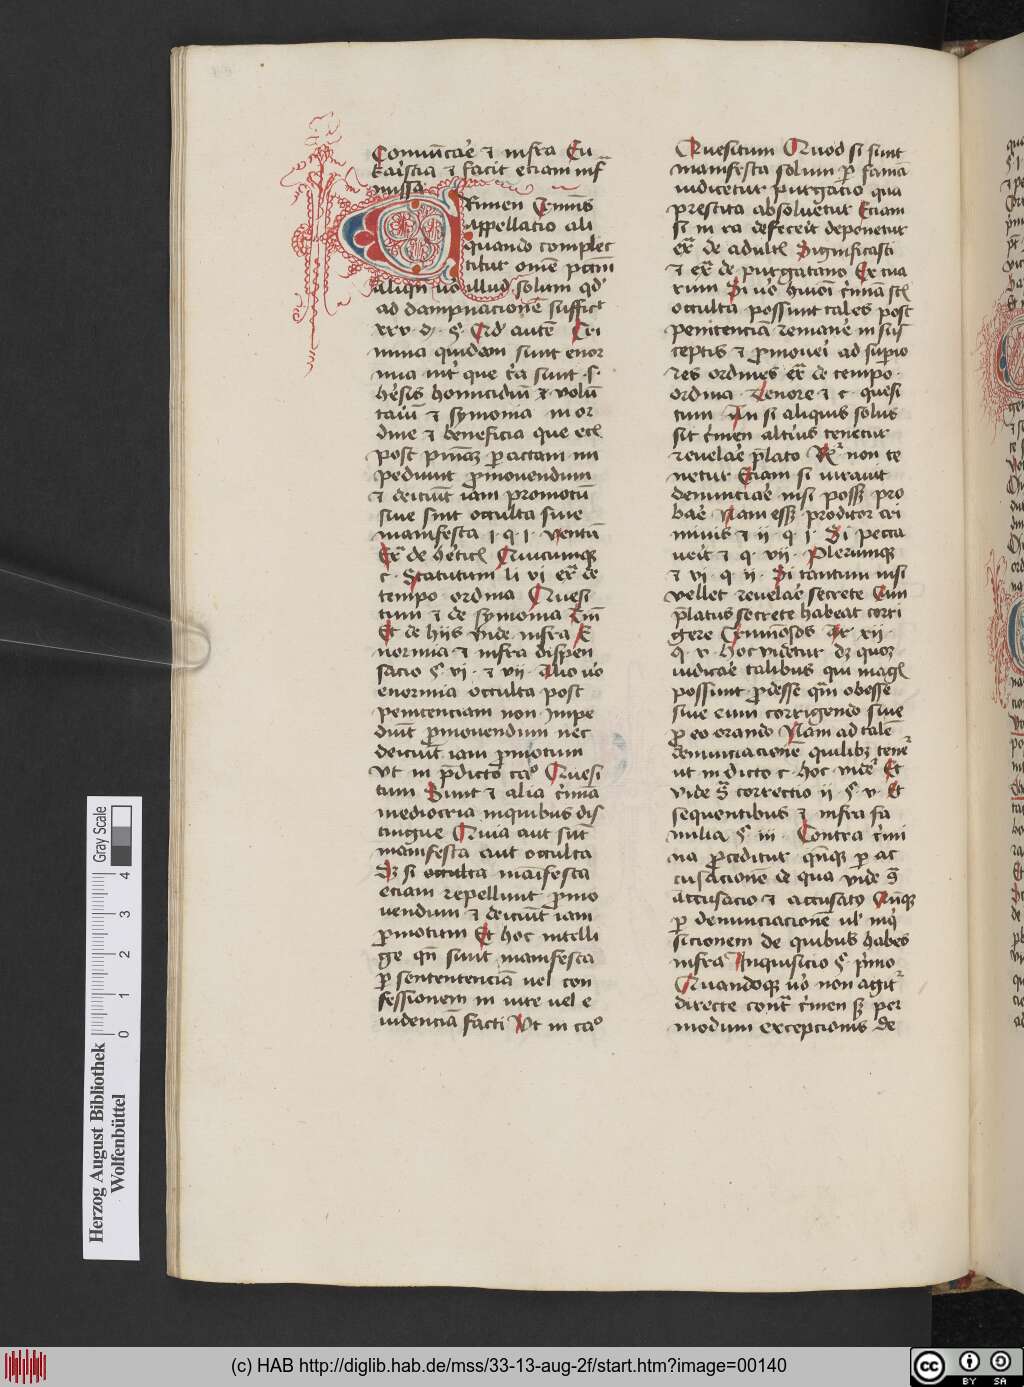 Comuncãe ⁊ infra Eu
karistia ⁊ facit etiam inf
missa
Rimen Crimins
Appellatio ali
quando complec
titur omẽ pctm̃
aliqñ vo illud solum qd
ad dampnacionẽ suffic
xxv d. § Crd autẽ Cri
mina quidem sunt enor
mia int que cra sunt .s.
hesis homicidiũ ⁊ volũ
tariũ ⁊ symonia in or
dine ⁊ beneficia que ecl
post pniaʒ pactam im
pediunt pmovendum
⁊ deiciũt iam promotũ
sive sint occulta sive
manifesta i. q. i. ventũ
Ext de hetic Quicumqʒ
c. Statutum li vi ext de
tempo ordina Quesi
tum ⁊ de symonia Tm̃
Et de hijs vide infra E
normia ⁊ infra dispen
sacio § vi. ⁊ vii. Alio vo
enormia occulta post
penitenciam non impe
diũt pmovendum nec
deiciũt iam pmotum
Vt in pdicto ca° Quesi
tum Sunt ⁊ alia crimĩa
mediocria inquibus dis
tingue Quia aut sũt
manifesta aut occulta
Sʒ si occulta manifesta
etiam repellunt pmo
vendum ⁊ deiciũt iam
pmotum Et hoc intelli
ge qñ sunt manifesta
p sententenciã vel con
fessionem in iure vel e
videnciã facti Vt in ca°
Quesitum Quod si sunt
manifesta solum p famã
indicetur purgatio qua
prestita absolvetur Etiam
si in ea defecerit deponetur
ext de adult Significasti
⁊ ext de purgatano Ex tua
rum Si vo quom crimĩa sct
occulta possunt tales post
penitenciã remane in sus
ceptis ⁊ pmoveri ad supio
res ordines ext de tempo.
ordina. Tenore ⁊ c. quesi
tum An si aliquis solus
scit crimen altius tenetur
revelare plato R non te
netur Etiam si iuravit
denunciare nisi possʒ pro
bare Nam essʒ proditor cri
minis ⁊ ii q. i. Si pecca
verit ⁊ q. vii. Plerumqʒ
⁊ vi q. ii. Si tantum nisi
vellet revelare secrete Cum
platus secrete habeat corri
gere Criminosos Ar xii.
q. v. Hoc videtur dʒ quoʒ
iudicare talibus qui magl
possunt pdesse qm̃ obesse
sive eum corrigendo sive
p eo orando Nam ad talẽ
denunciacionẽ quilibʒ tene
ut in dicto c. hoc vide Et
vide S correctio ii § v. Et
sequentibus ⁊ infra fa
milia § iii. Contra crimi
na pceditur qnqʒ p ac
cusacione de qua vide S
Accusacio ⁊ accusato Qnqʒ
p denunciacionẽ vl inq
sicionem de quibus habes
infra Inquisicio § pmo
Quandoqʒ vo non agit
directe cont crimen sʒ per
modum excepcionis de
Herzog August Bibliothek
Wolfenbüttel
0 1 2 3 4
Gray Scale
(c) HAB http://diglib.hab.de/mss/33-13-aug-2f/start.htm?image=00140
cc BY SA